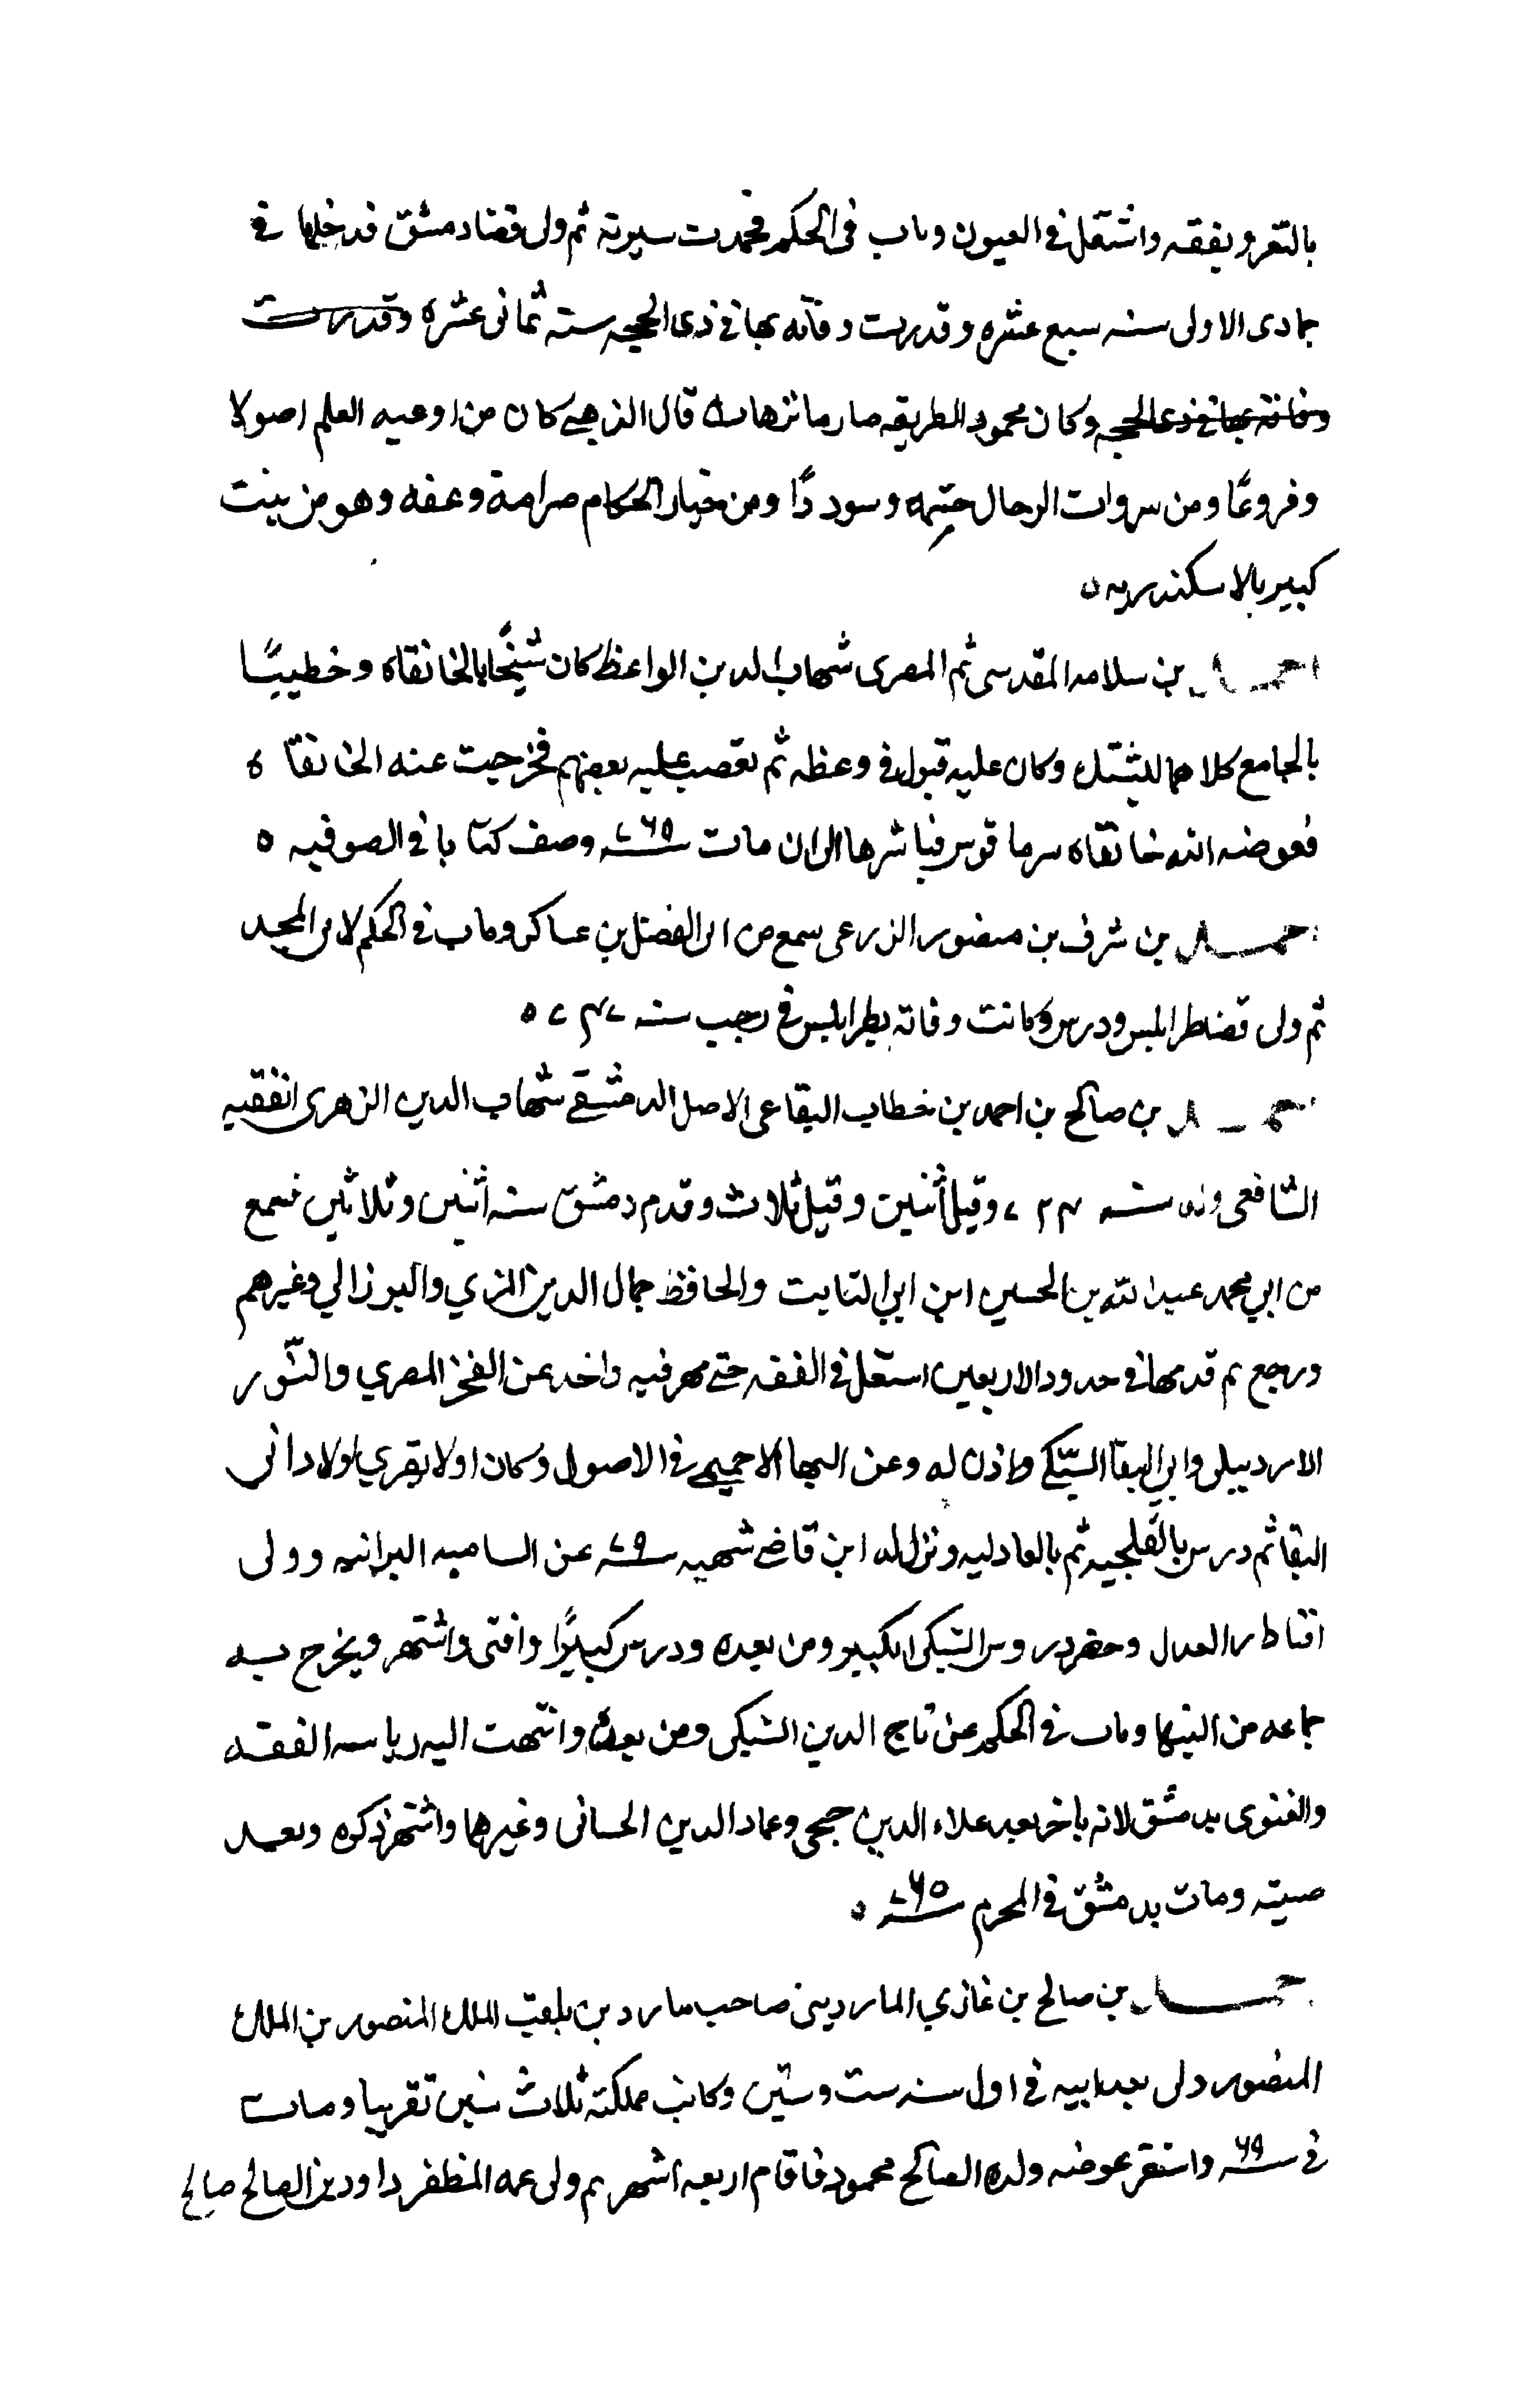 بالثغر وتفقه واشتغل في العيون وناب في الحكم فحمدت سيرته ثم ولي قضا دمشق فدخلها في
جمادى الاولى سنه سبع عشره وقدرت وفاته بها في ذى الحجه سنه ثمانى عشره وقدرت
وفاته بها في ذى الحجه وكان محمود الطريقه صارما نزها قال الذهبي كان من اوعيه العلم اصولا
وفروعًا ومن سروات الرجال حشمه وسوددًا ومن خيار الحكام صرامة وعفه وهو من بيت
كبير بالاسكندريه ه
احمد بن سلامه المقدسى ثم المصرى شهاب الدين الواعظ كان شيخًا بالخانقاه وخطيبًا
بالجامع كلاهما لبشتك وكان عليه قبول في وعظه ثم تعصب عليه بعضهم فخرجت عنه الخانقا ه
فعوضه الله خانقاه سرياقوس فباشرها الى ان مات سنه ٧٦٥ وصنف كتابا في الصوفيه ه
احمد بن شرف بن منصور الزرعى سمع من ابى الفضل بن عساكر وناب في الحكم لابن المجد
ثم ولى قضا طرابلس ودرس وكانت وفاته بطرابلس في رجب سنه ٧٤٧ ه
احمد بن صالح بن احمد بن خطاب البقاعى الاصل الدمشقي شهاب الدين الزهرى الفقيه
الشافعى ولد سنه ٧٢٣ وقيل اثنين وقيل ثلاث وقدم دمشق سنه اثنين وثلاثين فسمع
من ابي محمد عبد الله بن الحسين ابن ابي التايت والحافظ جمال الدين المزي والبرزالي وغيرهم
ورجع ثم قدمها في حدود الاربعين اشتغل في الفقه حتى مهر فيه واخد عن الفخر المصري والنور
الاردبيلى وابي البقا السبكي واذن له وعن البها الاخميمي في الاصول وكان اولا يقري اولاد ابى
البقا ثم درس بالقليجيه ثم بالعادليه ونزل له ابن قاضي شهبه سنه ٧٩ عن الشاميه البرانيه وولى
افتا دار العدل وحضر دروس السبكى الكبير ومن بعده ودرس كبيرًا وافتى واشتهر وتخرج به
جماعه من النبها وناب في الحكم عن تاج الدين السبكى ومن بعده وانتهت اليه رياسه الفقه
والفتوى بدمشق لانه تاخر بعد علاء الدين حجى وعماد الدين الحسبانى وغيرهما واشتهر ذكره وبعد
صيته ومات بدمشق في المحرم سنه ٧٦٥ ه
احمد بن صالح بن غازي الماردينى صاحب ماردين يلقب الملك المنصور بن الملك
المنصور ولى بعد ابيه في اول سنه ست وستين وكانت مملكته ثلاث سنين تقريبا ومات
في سنه ٦٩ واستقر عوضه ولده الصالح محمود فاقام اربعه اشهر ثم ولى عمه المظفر داود بن الصالح صالح